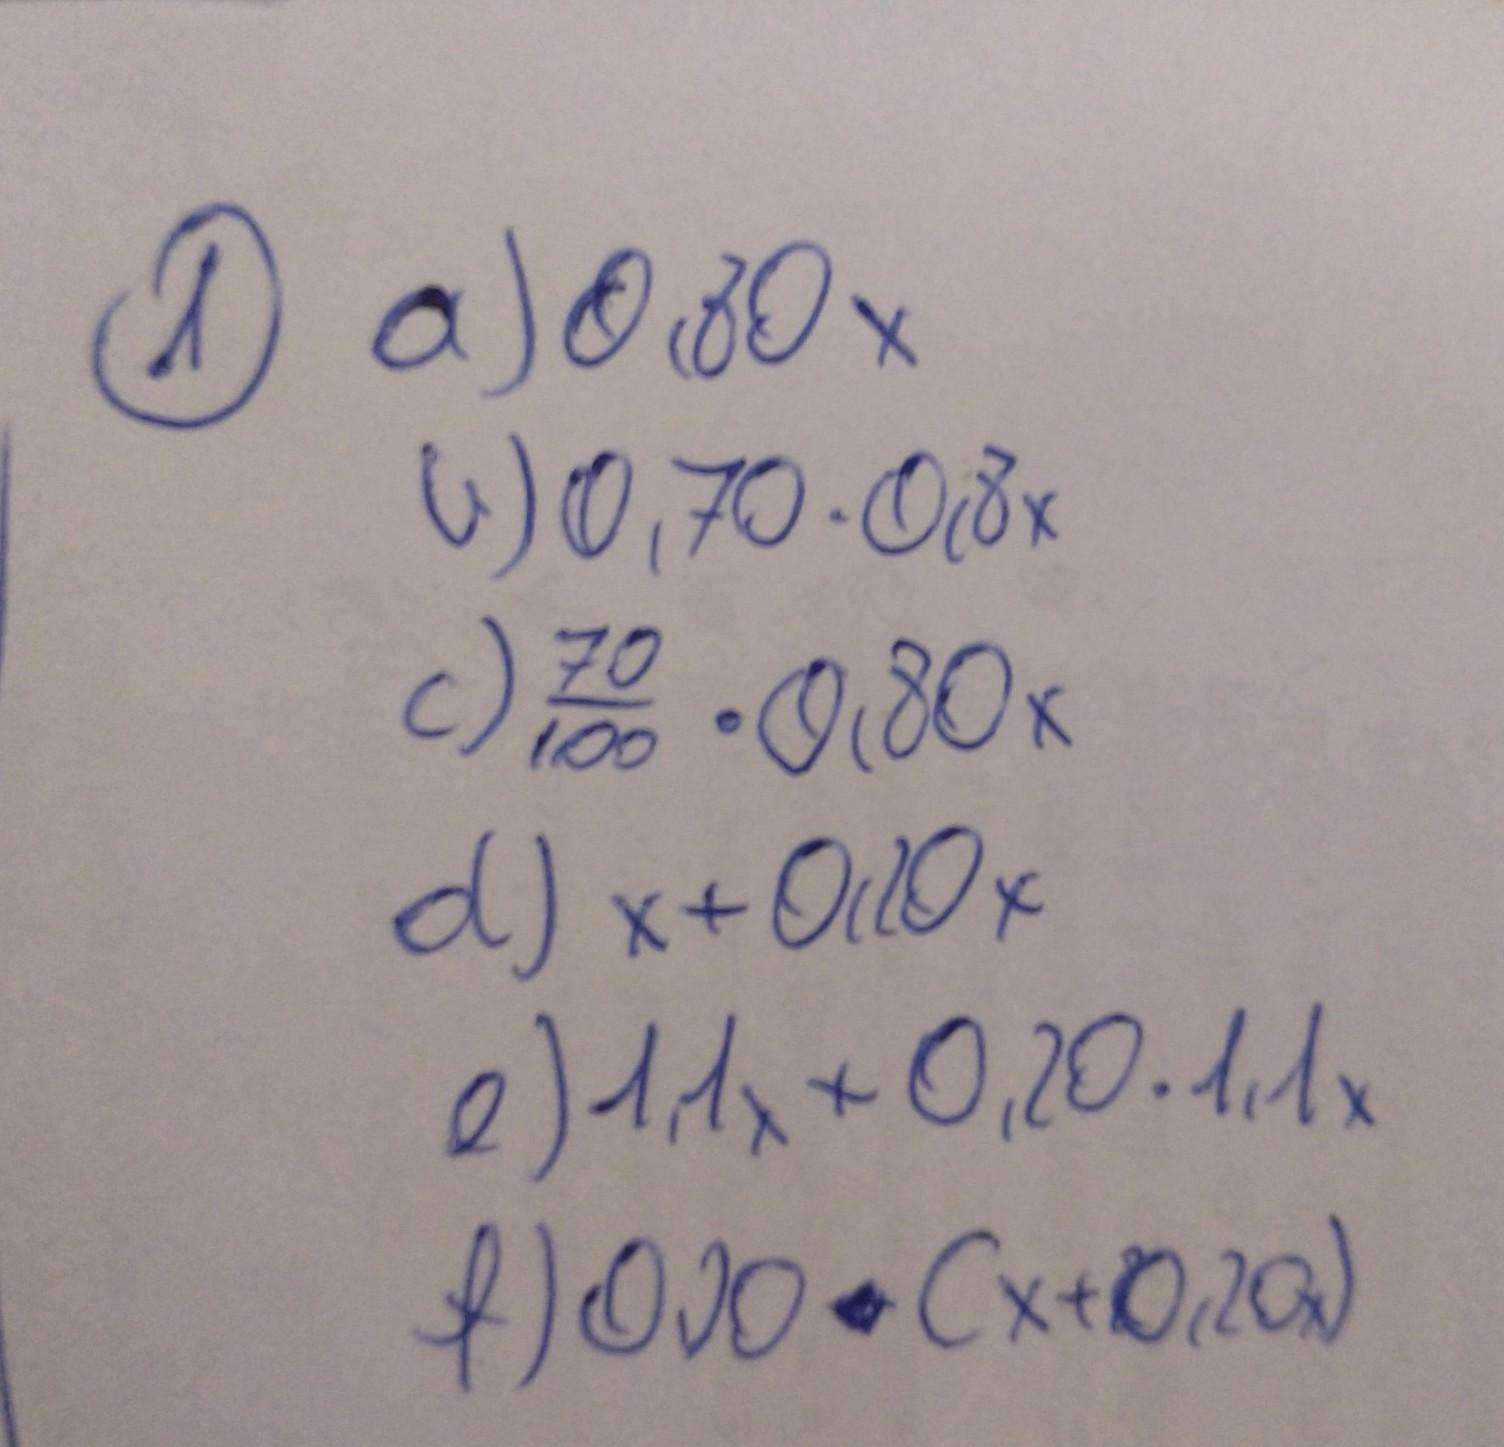 ① a) 0,80x
b) 0,70 · 0,8x
c) 70/100 · 0,80x
d) x + 0,20x
e) 1,1x + 0,20 · 1,1x
f) · (x + 0,20x)